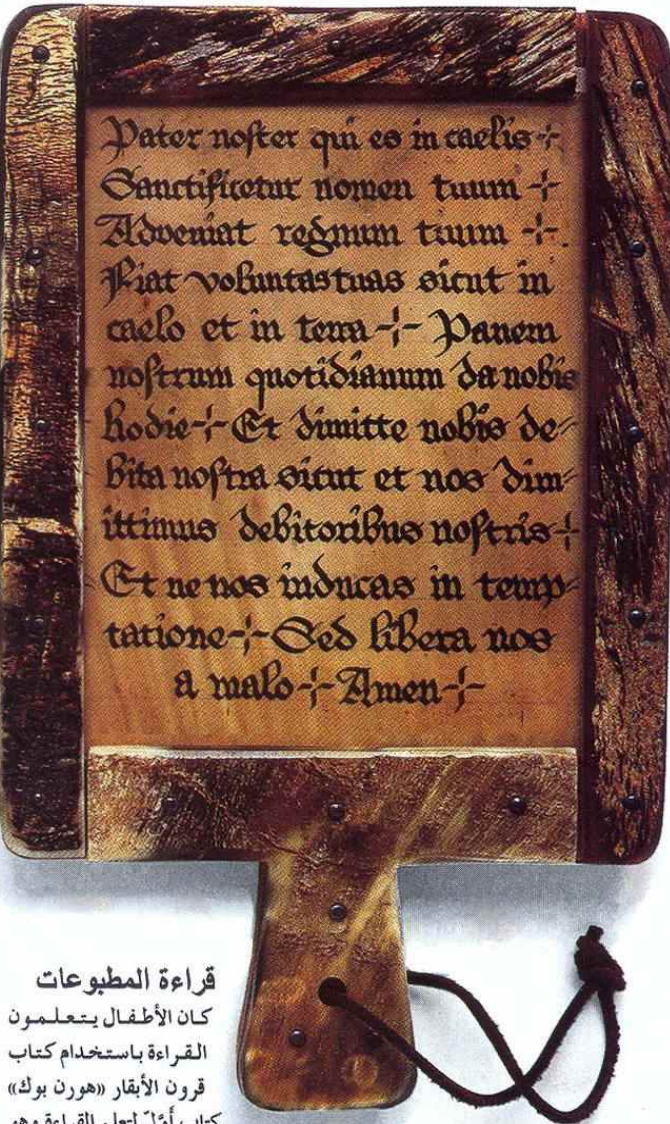 Pater noster qui es in caelis
Sanctificetur nomen tuum
Adveniat regnum tuum
Fiat voluntas tuas sicut in
caelo et in terra Panem
nostrum quotidianum da nobis
hodie Et dimitte nobis de-
bita nostra sicut et nos dim-
ittimus debitoribus nostris
Et ne nos inducas in temp-
tatione Sed libera nos
a malo Amen
قراءة المطبوعات
كان الأطفال يتعلمون
القراءة باستخدام كتاب
قرون الأبقار «هورن بوك»
كتاب أوّل لتعلم القراءة وهو